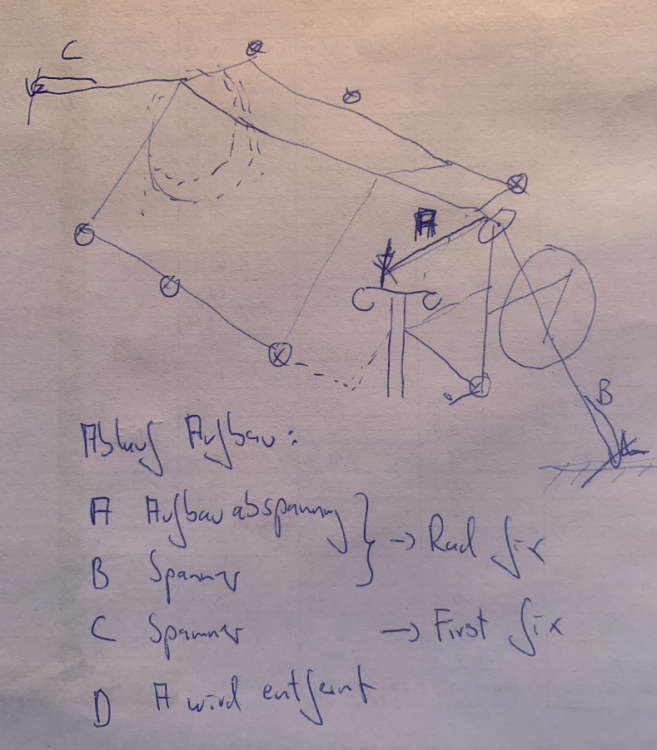 C
A
B
Ablauf Aufbau:
A Aufbauabspannung } → Rad fix
B Spanner
C Spanner → First fix
D A wird entfernt